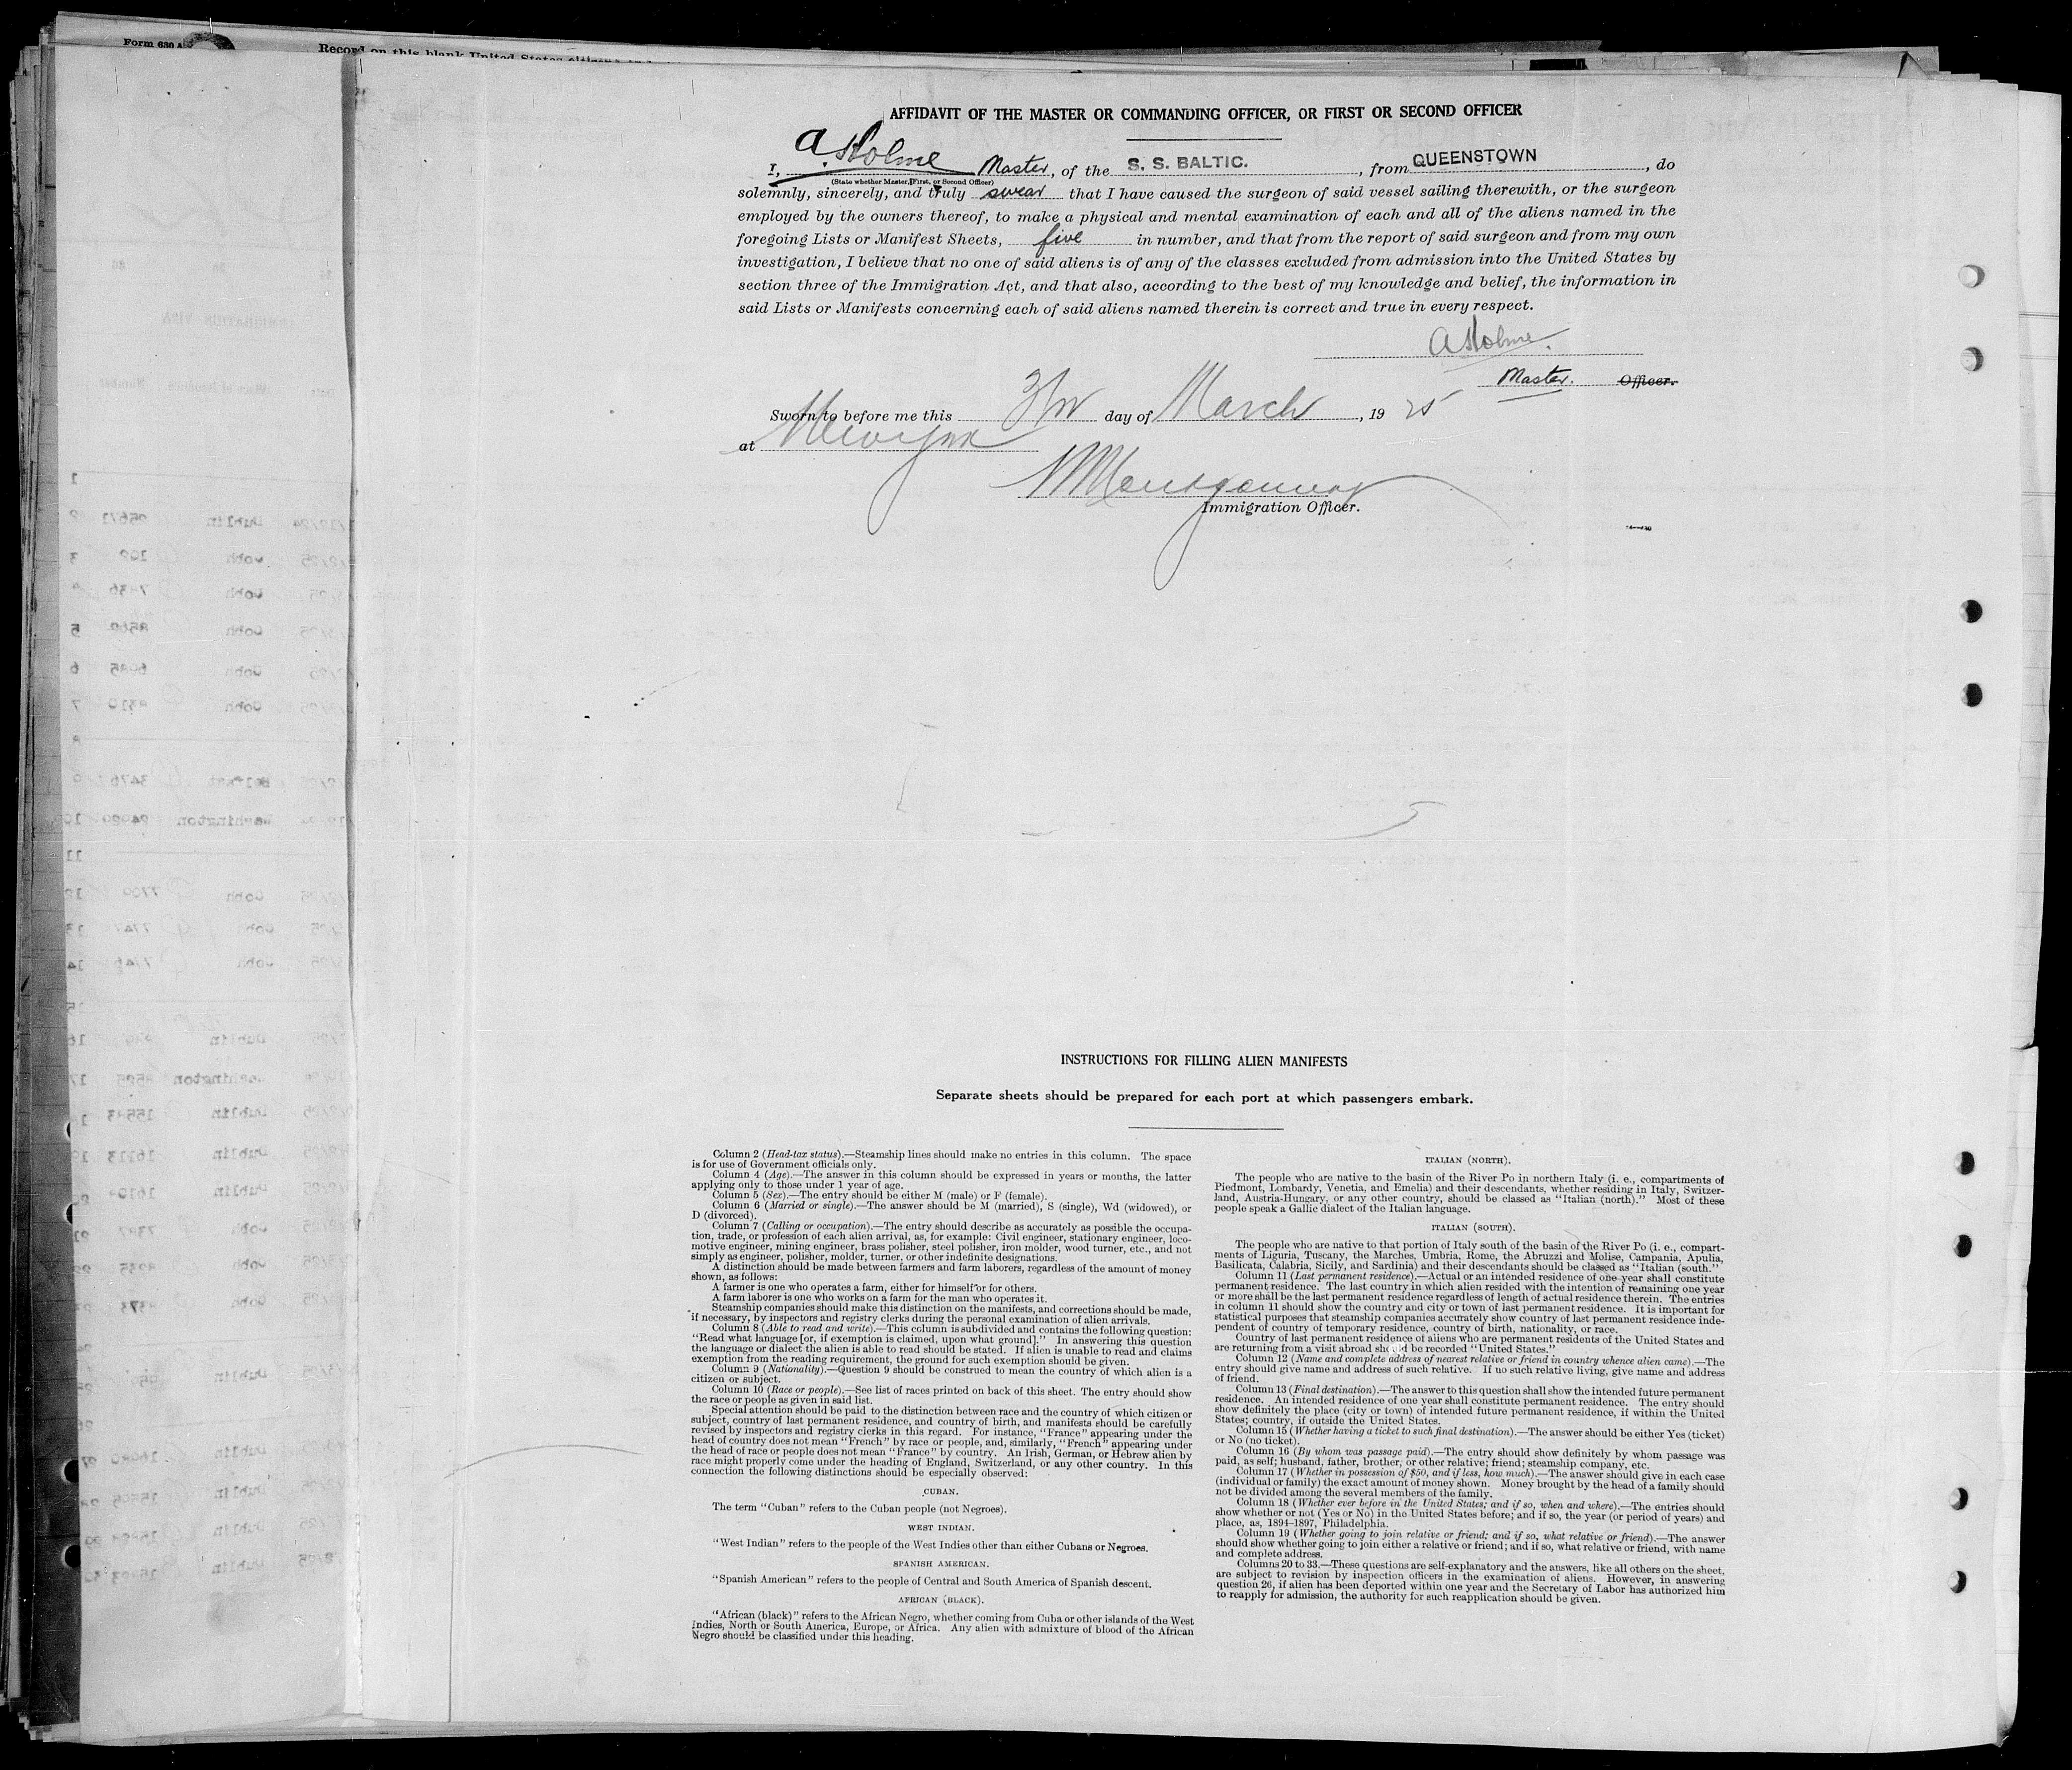 Form 630 A
Record on this blank United States citizens
AFFIDAVIT OF THE MASTER OR COMMANDING OFFICER, OR FIRST OR SECOND OFFICER
I, A Holme Master, of the S. S. BALTIC. , from QUEENSTOWN , do
(State whether Master, First, or Second Officer)
solemnly, sincerely, and truly swear that I have caused the surgeon of said vessel sailing therewith, or the surgeon
employed by the owners thereof, to make a physical and mental examination of each and all of the aliens named in the
foregoing Lists or Manifest Sheets, five in number, and that from the report of said surgeon and from my own
investigation, I believe that no one of said aliens is of any of the classes excluded from admission into the United States by
section three of the Immigration Act, and that also, according to the best of my knowledge and belief, the information in
said Lists or Manifests concerning each of said aliens named therein is correct and true in every respect.
A Holme.
Master. Officer.
Sworn to before me this day of March , 19 25
at New York
Montgomery
Immigration Officer.
INSTRUCTIONS FOR FILLING ALIEN MANIFESTS
Separate sheets should be prepared for each port at which passengers embark.
Column 2 (Head-tax status).—Steamship lines should make no entries in this column. The space
is for use of Government officials only.
Column 4 (Age).—The answer in this column should be expressed in years or months, the latter
applying only to those under 1 year of age.
Column 5 (Sex).—The entry should be either M (male) or F (female).
Column 6 (Married or single).—The answer should be M (married), S (single), Wd (widowed), or
D (divorced).
Column 7 (Calling or occupation).—The entry should describe as accurately as possible the occupa-
tion, trade, or profession of each alien arrival, as, for example: Civil engineer, stationary engineer, loco-
motive engineer, mining engineer, brass polisher, steel polisher, iron molder, wood turner, etc., and not
simply as engineer, polisher, molder, turner, or other indefinite designations.
A distinction should be made between farmers and farm laborers, regardless of the amount of money
shown, as follows:
A farmer is one who operates a farm, either for himself or for others.
A farm laborer is one who works on a farm for the man who operates it.
Steamship companies should make this distinction on the manifests, and corrections should be made,
if necessary, by inspectors and registry clerks during the personal examination of alien arrivals.
Column 8 (Able to read and write).—This column is subdivided and contains the following question:
"Read what language [or, if exemption is claimed, upon what ground]." In answering this question
the language or dialect the alien is able to read should be stated. If alien is unable to read and claims
exemption from the reading requirement, the ground for such exemption should be given.
Column 9 (Nationality).—Question 9 should be construed to mean the country of which alien is a
citizen or subject.
Column 10 (Race or people).—See list of races printed on back of this sheet. The entry should show
the race or people as given in said list.
Special attention should be paid to the distinction between race and the country of which citizen or
subject, country of last permanent residence, and country of birth, and manifests should be carefully
revised by inspectors and registry clerks in this regard. For instance, "France" appearing under the
head of country does not mean "French" by race or people, and, similarly, "French" appearing under
the head of race or people does not mean "France" by country. An Irish, German, or Hebrew alien by
race might properly come under the heading of England, Switzerland, or any other country. In this
connection the following distinctions should be especially observed:
CUBAN.
The term "Cuban" refers to the Cuban people (not Negroes).
WEST INDIAN.
"West Indian" refers to the people of the West Indies other than either Cubans or Negroes.
SPANISH AMERICAN.
"Spanish American" refers to the people of Central and South America of Spanish descent.
AFRICAN (BLACK).
"African (black)" refers to the African Negro, whether coming from Cuba or other islands of the West
Indies, North or South America, Europe, or Africa. Any alien with admixture of blood of the African
Negro should be classified under this heading.
ITALIAN (NORTH).
The people who are native to the basin of the River Po in northern Italy (i. e., compartments of
Piedmont, Lombardy, Venetia, and Emelia) and their descendants, whether residing in Italy, Switzer-
land, Austria-Hungary, or any other country, should be classed as "Italian (north)." Most of these
people speak a Gallic dialect of the Italian language.
ITALIAN (SOUTH).
The people who are native to that portion of Italy south of the basin of the River Po (i. e., compart-
ments of Liguria, Tuscany, the Marches, Umbria, Rome, the Abruzzi and Molise, Campania, Apulia,
Basilicata, Calabria, Sicily, and Sardinia) and their descendants should be classed as "Italian (south."
Column 11 (Last permanent residence).—Actual or an intended residence of one year shall constitute
permanent residence. The last country in which alien resided with the intention of remaining one year
or more shall be the last permanent residence regardless of length of actual residence therein. The entries
in column 11 should show the country and city or town of last permanent residence. It is important for
statistical purposes that steamship companies accurately show country of last permanent residence inde-
pendent of country of temporary residence, country of birth, nationality, or race.
Country of last permanent residence of aliens who are permanent residents of the United States and
are returning from a visit abroad should be recorded "United States."
Column 12 (Name and complete address of nearest relative or friend in country whence alien came).—The
entry should give name and address of such relative. If no such relative living, give name and address
of friend.
Column 13 (Final destination).—The answer to this question shall show the intended future permanent
residence. An intended residence of one year shall constitute permanent residence. The entry should
show definitely the place (city or town) of intended future permanent residence, if within the United
States; country, if outside the United States.
Column 15 (Whether having a ticket to such final destination).—The answer should be either Yes (ticket)
or No (no ticket).
Column 16 (By whom was passage paid).—The entry should show definitely by whom passage was
paid, as self; husband, father, brother, or other relative; friend; steamship company, etc.
Column 17 (Whether in possession of $50, and if less, how much).—The answer should give in each case
(individual or family) the exact amount of money shown. Money brought by the head of a family should
not be divided among the several members of the family.
Column 18 (Whether ever before in the United States; and if so, when and where).—The entries should
show whether or not (Yes or No) in the United States before; and if so, the year (or period of years) and
place, as, 1894–1897, Philadelphia.
Column 19 (Whether going to join relative or friend; and if so, what relative or friend).—The answer
should show whether going to join either a relative or friend; and if so, what relative or friend, with name
and complete address.
Columns 20 to 33.—These questions are self-explanatory and the answers, like all others on the sheet,
are subject to revision by inspection officers in the examination of aliens. However, in answering
question 26, if alien has been deported within one year and the Secretary of Labor has authorized him
to reapply for admission, the authority for such reapplication should be given.